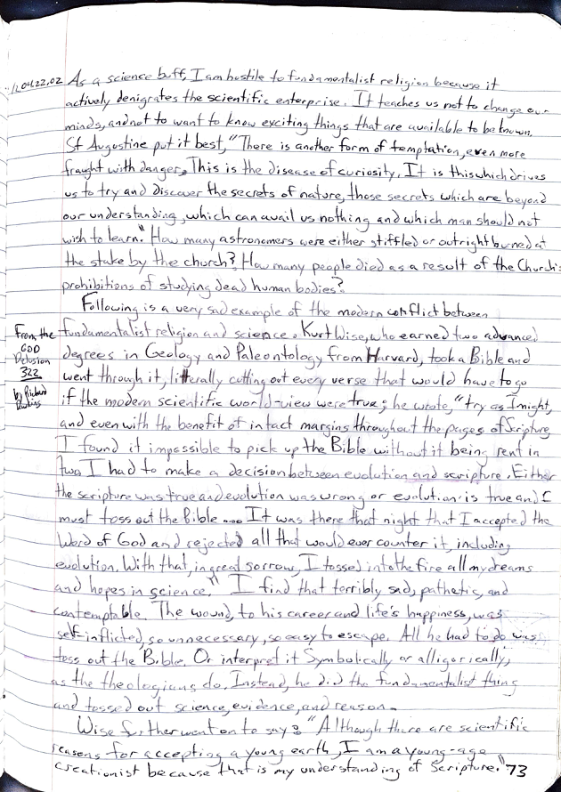 04.22.02 As a science buff, I am hostile to fundamentalist religion because it
actively denigrates the scientific enterprise. It teaches us not to change our
minds, and not to want to know exciting things that are available to be known.
St Augustine put it best, "There is another form of temptation, even more
fraught with danger. This is the disease of curiosity. It is this which drives
us to try and discover the secrets of nature, those secrets which are beyond
our understanding, which can avail us nothing and which man should not
wish to learn." How many astronomers were either stiffled or outright burned at
the stake by the church? How many people died as a result of the Church's
prohibitions of studying dead human bodies?
Following is a very sad example of the modern conflict between
From the
GOD
Delusion
322
by Richard
Dawkins
fundamentalist religion and science. Kurt Wise, who earned two advanced
degrees in Geology and Paleontology from Harvard, took a Bible and
went through it, litterally cutting out every verse that would have to go
if the modern scientific world-view were true; he wrote, "try as I might,
and even with the benefit of intact margins throughout the pages of Scripture,
I found it impossible to pick up the Bible without it being rent in
two. I had to make a decision between evolution and scripture. Either
the scripture was true and evolution was wrong or evolution is true and I
must toss out the Bible .... It was there that night that I accepted the
Word of God and rejected all that would ever counter it, including
evolution. With that, in great sorrow, I tossed into the fire all my dreams
and hopes in science." I find that terribly sad, pathetic, and
contemptable. The wound, to his career and life's happiness, was
self-inflicted, so unnecessary, so easy to escape. All he had to do was
toss out the Bible. Or interpret it symbolically or alligorically,
as the theologians do. Instead, he did the fundamentalist thing
and tossed out science, evidence, and reason.
Wise further went on to say: "Although there are scientific
reasons for accepting a young earth, I am a young-age
creationist because that is my understanding of Scripture." 73